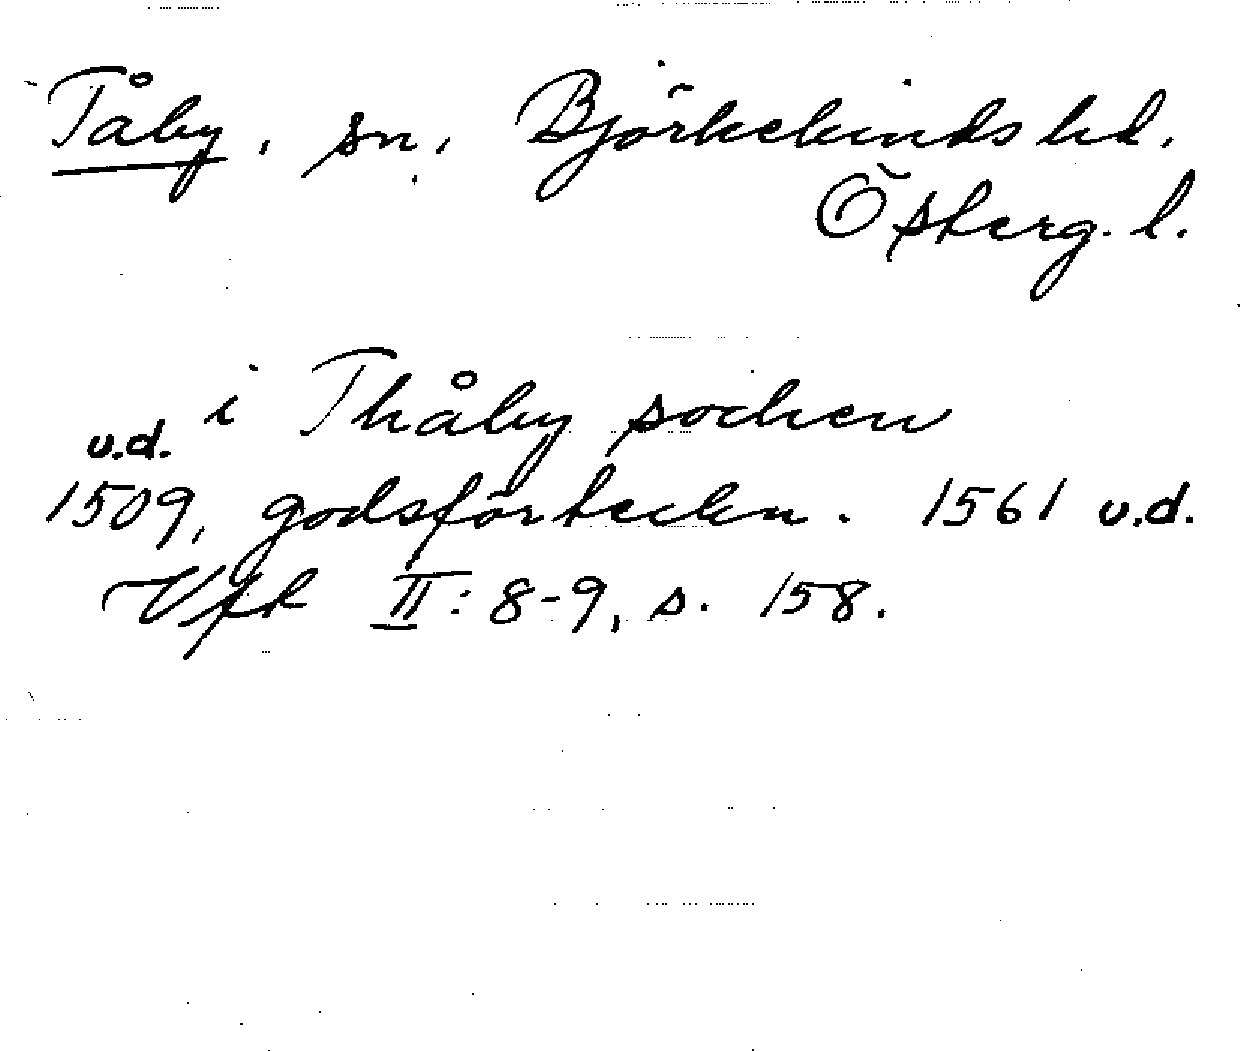 Tåby, sn, Björkekinds hd.
Österg. l.
i Thåby socken
u.d.
1509, godsförteckn. 1561 u.d.
Vfk II: 8-9, s. 158.